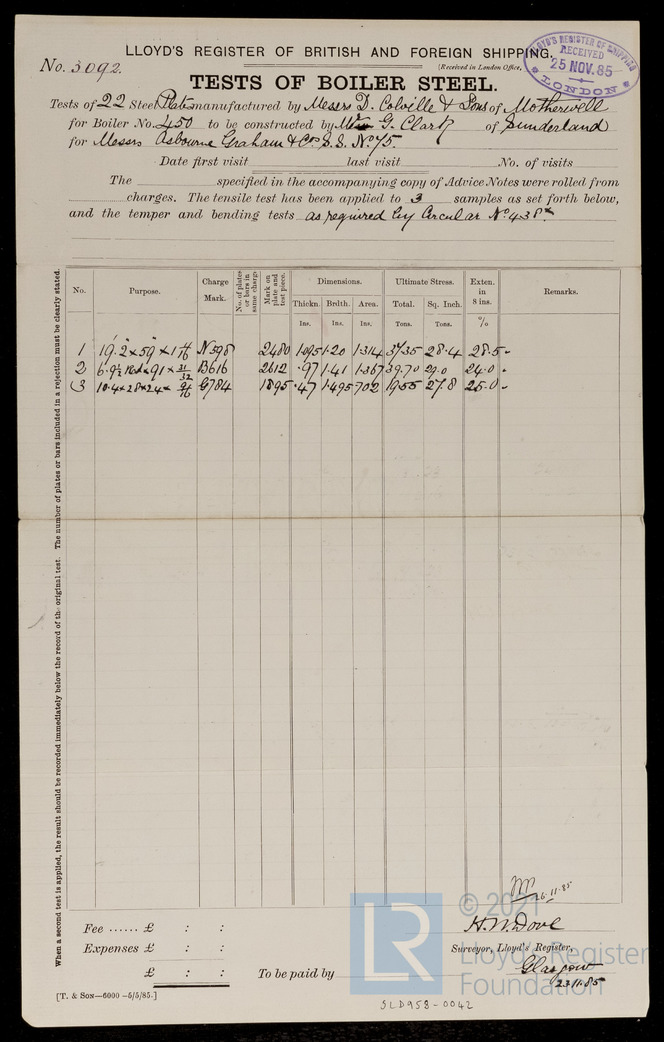 LLOYD'S REGISTER OF BRITISH AND FOREIGN SHIPPING.
No. 3092.
(Received in London Office,
LLOYD'S REGISTER OF SHIPPING
RECEIVED
25 NOV. 85
LONDON
TESTS OF BOILER STEEL.
Tests of 22 Steel Plates manufactured by Messrs D. Colville & Sons of Motherwell
for Boiler No. 450 to be constructed by Mr G. Clark of Sunderland
for Messrs Osbourne Graham & Co S.S. No 75.
Date first visit last visit No. of visits
The specified in the accompanying copy of Advice Notes were rolled from
charges. The tensile test has been applied to 3 samples as set forth below,
and the temper and bending tests as required by Circular No 438*
No. Purpose. Charge Mark. No. of plates or bars in same charge Mark on plate and test piece. Dimensions. Ultimate Stress. Exten. in 8 ins. Remarks.
Thickn. Brdth. Area. Total. Sq. Inch.
Ins. Ins. Ins. Tons. Tons. %
1 19.2 x 59 x 1 N598 2480 1.095 1.20 1.314 37.35 28.4 28.5
2 6.9½ x 91 x 31/32 B616 2612 .97 1.41 1.367 39.70 29.0 24.0
3 10.4 x 28 x 24 G784 1895 .47 1.495 .702 19.55 27.8 25.0
When a second test is applied, the result should be recorded immediately below the record of the original test. The number of plates or bars included in a rejection must be clearly stated.
26.11.85
Fee ...... £ : :
H. W. Dove
Expenses £ : :
Surveyor, Lloyd's Register,
£ : :
To be paid by
Glasgow
23/11/85
[T. & SON—6000—5/5/85.]
SLD958-0042
LR
© 2021
Lloyd's Register
Foundation